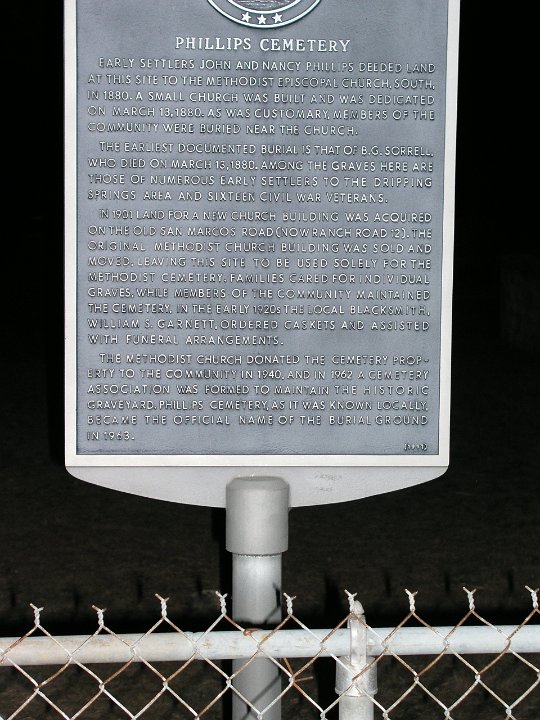 PHILLIPS CEMETERY
EARLY SETTLERS JOHN AND NANCY PHILLIPS DEEDED LAND
AT THIS SITE TO THE METHODIST EPISCOPAL CHURCH, SOUTH,
IN 1880. A SMALL CHURCH WAS BUILT AND WAS DEDICATED
ON MARCH 13, 1880. AS WAS CUSTOMARY, MEMBERS OF THE
COMMUNITY WERE BURIED NEAR THE CHURCH.
THE EARLIEST DOCUMENTED BURIAL IS THAT OF B.G. SORRELL,
WHO DIED ON MARCH 13, 1880. AMONG THE GRAVES HERE ARE
THOSE OF NUMEROUS EARLY SETTLERS TO THE DRIPPING
SPRINGS AREA AND SIXTEEN CIVIL WAR VETERANS.
IN 1901 LAND FOR A NEW CHURCH BUILDING WAS ACQUIRED
ON THE OLD SAN MARCOS ROAD (NOW RANCH ROAD 12). THE
ORIGINAL METHODIST CHURCH BUILDING WAS SOLD AND
MOVED, LEAVING THIS SITE TO BE USED SOLELY FOR THE
METHODIST CEMETERY. FAMILIES CARED FOR INDIVIDUAL
GRAVES, WHILE MEMBERS OF THE COMMUNITY MAINTAINED
THE CEMETERY. IN THE EARLY 1920s THE LOCAL BLACKSMITH,
WILLIAM S. GARNETT, ORDERED CASKETS AND ASSISTED
WITH FUNERAL ARRANGEMENTS.
THE METHODIST CHURCH DONATED THE CEMETERY PROP-
ERTY TO THE COMMUNITY IN 1940, AND IN 1962 A CEMETERY
ASSOCIATION WAS FORMED TO MAINTAIN THE HISTORIC
GRAVEYARD. PHILLIPS CEMETERY, AS IT WAS KNOWN LOCALLY,
BECAME THE OFFICIAL NAME OF THE BURIAL GROUND
IN 1963.